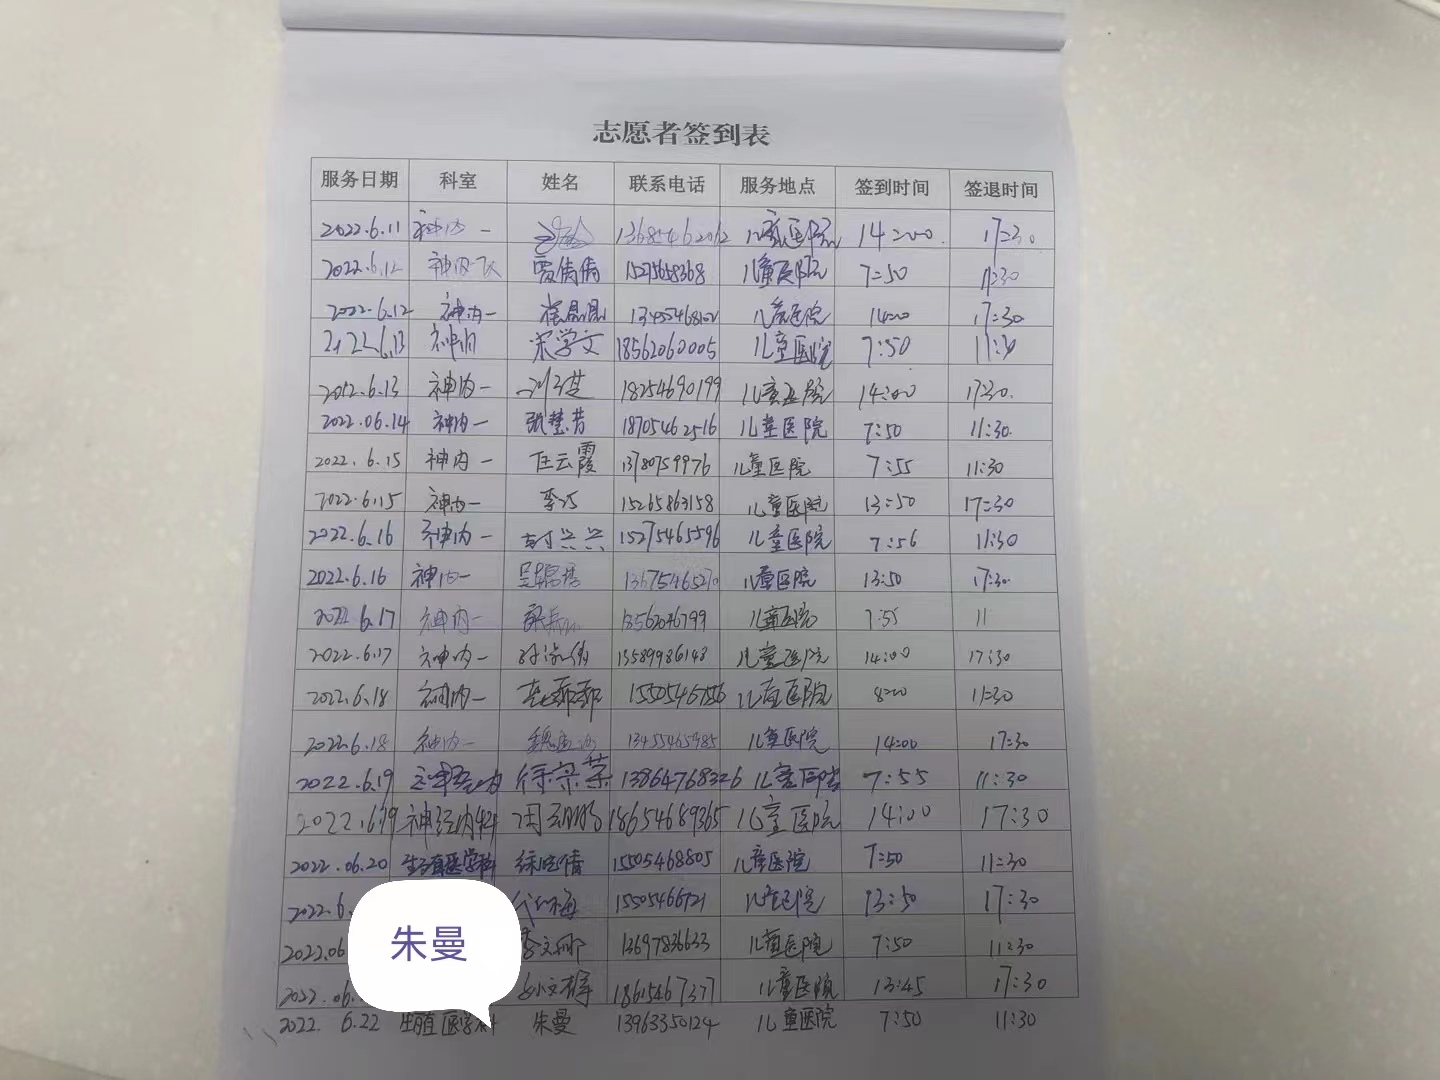 志愿者签到表
服务日期 科室 姓名 联系电话 服务地点 签到时间 签退时间
2022.6.11 神内一 儿童医院 14:00 17:30
2022.6.12 神内一 贾倩倩 15275658368 儿童医院 7:50 11:30
2022.6.12 神内一 崔晶晶 儿童医院 14:00 17:30
2022.6.13 神内 宋学文 18562060005 儿童医院 7:50 11:30
2022.6.13 神内一 18254690199 儿童医院 14:00 17:30.
2022.06.14 神内一 张慧芳 18705462516 儿童医院 7:50 11:30.
2022.6.15 神内一 任云霞 13780759976 儿童医院 7:55 11:30
2022.6.15 神内一 李巧 15265863158 儿童医院 13:50 17:30
2022.6.16 神内一 15275465596 儿童医院 7:56 11:30
2022.6.16 神内一 儿童医院 13:50 17:30.
2022.6.17 神内一 儿童医院 7:55 11
2022.6.17 神内一 13589986148 儿童医院 14:00 17:30
2022.6.18 神内一 儿童医院 8:00 11:30
2022.6.18 神内一 13455465985 儿童医院 14:00 17:30
2022.6.19 神经内 徐宗荣 13864768326 儿童医院 7:55 11:30
2022.6.19 神经内科 18654689365 儿童医院 14:00 17:30
2022.06.20 生殖医学科 徐晓倩 15505468805 儿童医院 7:50 11:30
2022.6. 代海 儿童医院 13:50 17:30
2022.06 李文娜 13697836633 儿童医院 7:50 11:30
朱曼
2022.06. 18615467377 儿童医院 13:45 17:30
2022.6.22 生殖医学科 朱曼 13963350124 儿童医院 7:50 11:30